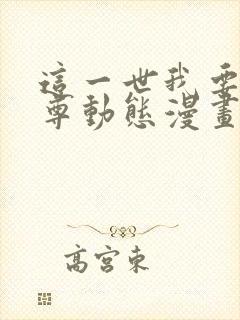 這一世我要
尊動態漫畫
高宮東